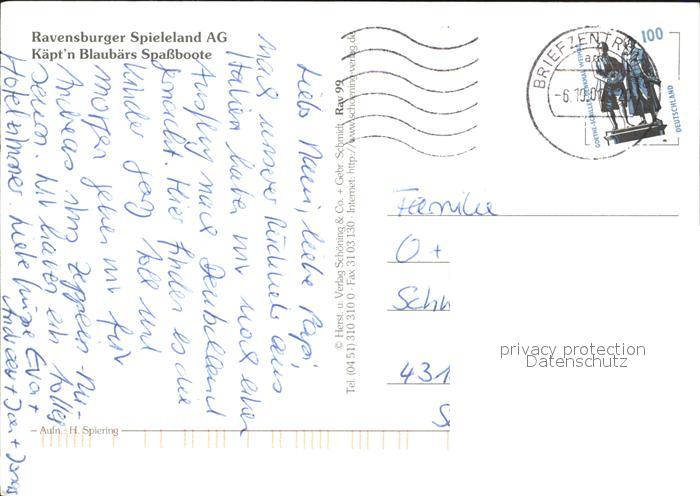 Ravensburger Spieleland AG
Käpt'n Blaubärs Spaßboote
Liebe Mami, liebe Papi,
nach unserer Rückkehr aus
Italien haben wir noch einen
Ausflug nach Deutschland
gemacht. Hier finden es die
Kinder ganz toll und
morgen gehen wir für
Andreas ins Zeppelin-Mu-
seum. Wir haben ein tolles
Hotelzimmer. Liebe Grüsse Eva +
Andreas +
Aufn.: H. Spiering
© Herst. u. Verlag Schöning & Co. + Gebr. Schmidt · Rav 99
Tel. (04 51) 310 310 0 · Fax 31 03 130 · Internet: http://www.schoening-verlag.de
BRIEFZENTR
-6.10.01
100
DEUTSCHLAND
GOETHE-SCHILLER-DENKMAL WEIMAR
Familie
O +
Sch
431
S
privacy protection
Datenschutz